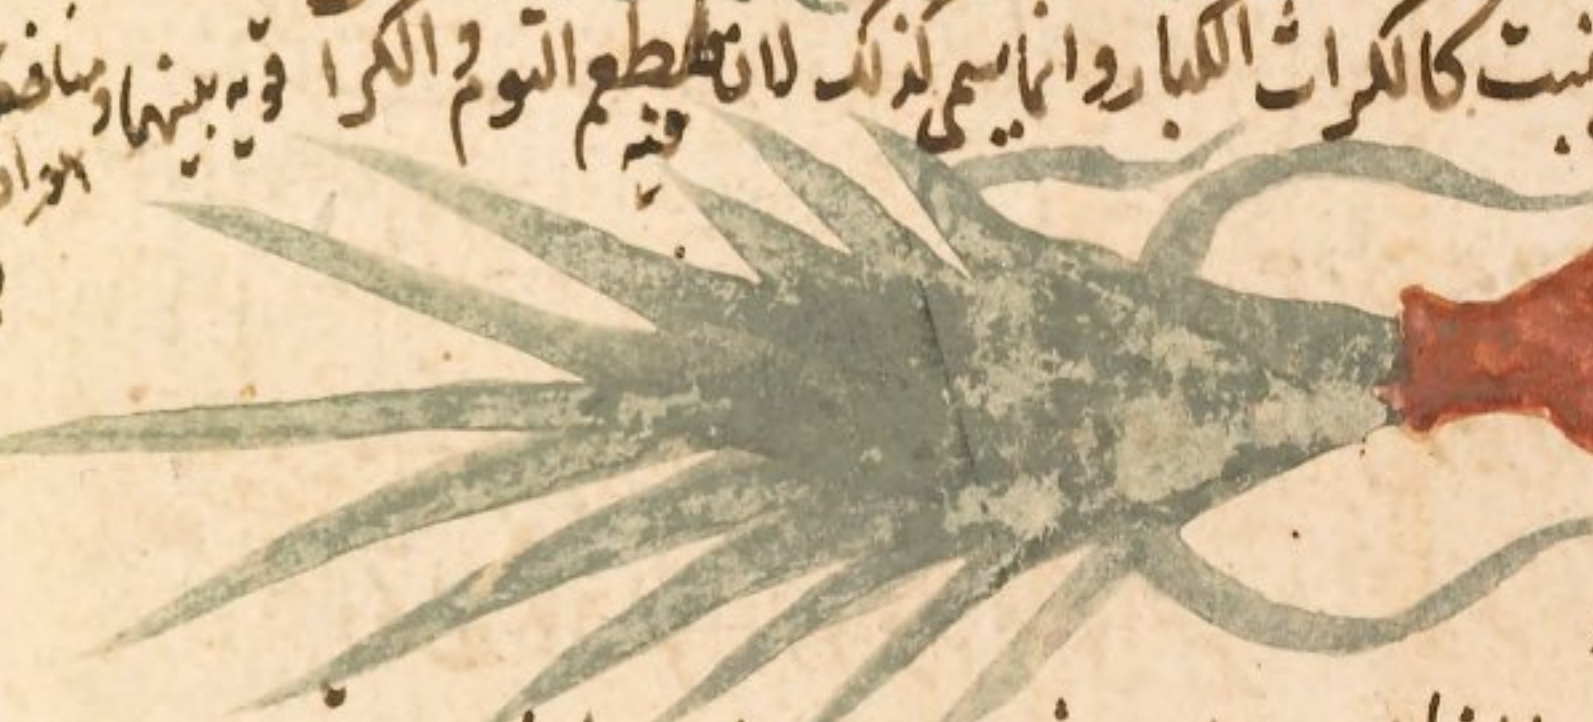 ينبت كالكراث الكبار وانما يسمى كذلك لان طعم الثوم والكرا قويه بينهما ومنافع
فيه